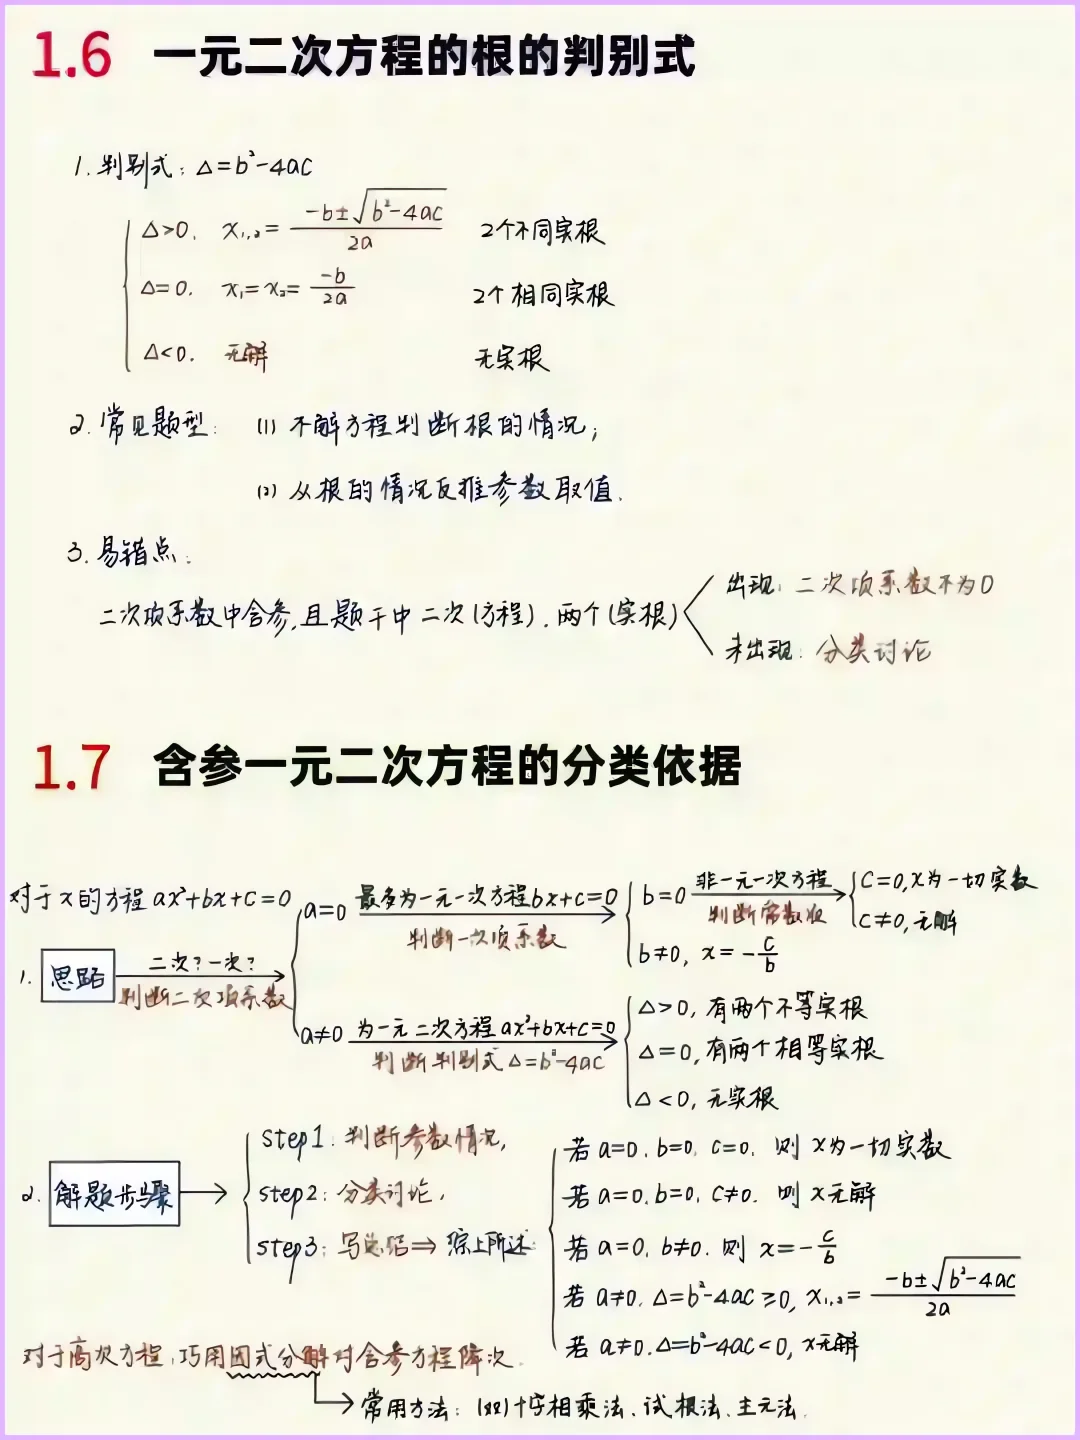 1.6 一元二次方程的根的判别式
1. 判别式: △=b²-4ac
△>0. x₁,₂= (-b±√(b²-4ac))/2a 2个不同实根
△=0. x₁=x₂= -b/2a 2个相同实根
△<0. 无解 无实根
2. 常见题型: (1) 不解方程判断根的情况;
(2) 从根的情况反推参数取值.
3. 易错点:
二次项系数中含参,且题干中二次(方程).两个(实根)
出现: 二次项系数不为0
未出现: 分类讨论
1.7 含参一元二次方程的分类依据
对于x的方程ax²+bx+c=0
1. 思路 二次?一次?
判断二次项系数
a=0 最多为一元一次方程bx+c=0
判断一次项系数
b=0 非一元一次方程
判断常数项
C=0,x为一切实数
C≠0,无解
b≠0, x=-c/b
a≠0 为一元二次方程ax²+bx+c=0
判断判别式△=b²-4ac
△>0,有两个不等实根
△=0,有两个相等实根
△<0,无实根
2. 解题步骤
step1: 判断参数情况,
step2: 分类讨论,
step3: 写总结⇒综上所述:
若a=0.b=0,c=0. 则x为一切实数
若a=0.b=0,c≠0. 则x无解
若a=0,b≠0.则x=-c/b
若a≠0,△=b²-4ac≥0, x₁,₂= (-b±√(b²-4ac))/2a
若a≠0.△=b²-4ac<0, x无解
对于高次方程,巧用因式分解对含参方程降次.
常用方法: (双)十字相乘法、试根法、主元法.